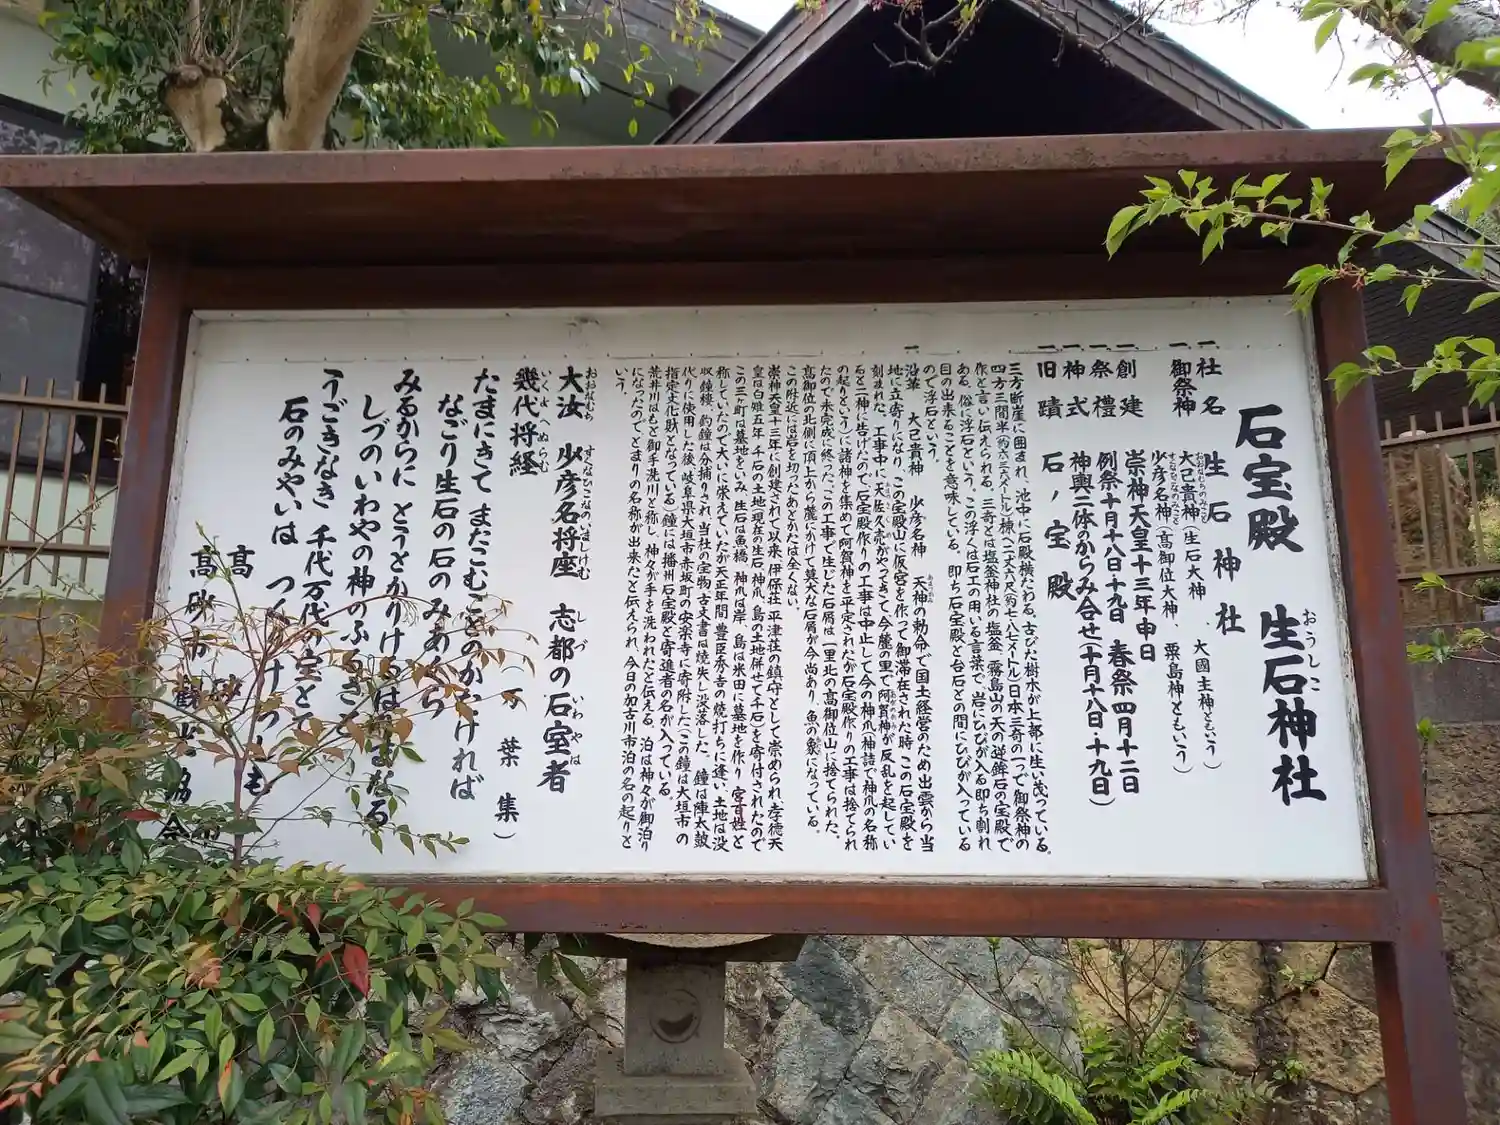 石宝殿 生石神社
おうしこ
一、社名 生石神社
一、御祭神 大己貴神(生石大神、大國主神ともいう)
おおなむちのみこと
少彦名神(高御位大神、粟島神ともいう)
すくなひこなのみこと
一、創建 崇神天皇十三年申日
一、祭禮 例祭十月十八日・十九日 春祭四月十二日
一、神式 神輿二体のからみ合せ(十月十八日・十九日)
一、旧蹟 石ノ宝殿
三方断崖に囲まれ、池中に石殿横たわる。古びた樹木が上部に生い茂っている。
四方三間半(約六・三メートル)棟へ二丈六尺(約七・八七メートル)日本三奇の一つで御祭神の
作と言い伝えられる。三奇とは塩釜神社の塩釜、霧島の天の逆鉾石の宝殿で
ある。俗に浮石という、この浮くは石工の用いる言葉で、岩にひびが入る即ち割れ
目の出来ることを意味している。即ち石宝殿と台石との間にひびが入っている
ので浮石という。
一、沿革 大己貴神 少彦名神 天神の勅命で国土経営のため出雲から当
地に立寄りになり、この宝殿山に仮宮を作って御滞在された時、この石宝殿を
刻まれた。工事中に天佐久売がやってきて、今麓の里で阿賀神が反乱を起してい
ると二神に告げたので、石宝殿作りの工事は中止して今の神爪(神詰で神爪の名称
の起りという)に諸神を集めて阿賀神を平定されたが石宝殿作りの工事は捨てられ
たので未完成に終った。この工事で生じた石屑は一里北の高御位山に捨てられた。
高御位の北側に頂上から麓にかけて莫大な石屑が今尚あり、魚の象になっている。
この附近には岩を切ったあとかたは全くない。
崇神天皇十三年に創建されて以来、伊保荘、平津荘の鎮守として崇められ、孝徳天
皇は白雉五年、千石の土地(現在の生石、神爪、島の土地併せて千石)を寄付されたので
この三ヶ町は墓地をいみ、生石は魚橋、神爪は岸、島は米田に墓地を作り、宮百姓と
称していたので大いに崇えていたが天正年間、豊臣秀吉の焼打ちに逢い、土地は没
収、鐘楼、釣鐘は分捕りされ、当社の宝物、古文書は焼失し没落した。鐘は陣太鼓
代りに使用した後、岐阜県大垣市赤坂町の安楽寺に寄附した(この鐘は大垣市の
指定文化財となっている)鐘には播州石宝殿と寄進者の名が入っている。
荒井川はもと御手洗川と称し、神々が手を洗われたと伝える。泊は神々が御泊り
になったのでとまりの名称が出来たと伝えられ、今日の加古川市泊の名の起りと
いう。
大汝 少彦名将座 志都の石室者
おおなむち すくなひこなのいましけむ しづ いわやは
幾代将経 (万葉集)
いくよへぬらむ
たまにきて またこむことの かたければ
なごり生石の 石のみあくら
みるからに とうとかりける はりまなる
しづのいわやの 神のふるさと
うごきなき 千代万代の 宝とて
石のみやいは つくりけつとも
高砂
高砂市観光協会